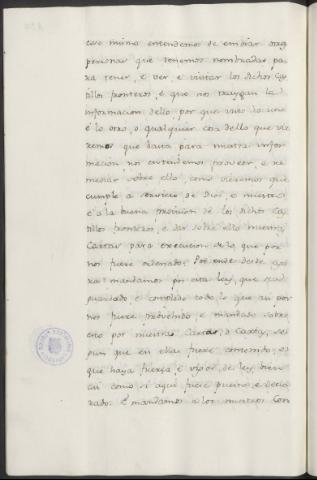 eso mismo entendemos de embiar otras
personas que tenemos nombradas pa-
ra tener, e ver, e visitar los dichos Cas-
tillos fronteros, e que nos traygan la
informacion dello por que visto lo uno
e lo otro, o qualquier cosa dello que vie-
remos que basta para nuestra infor-
macion nos entendemos proveer, e re-
mediar sobre ello, como vieremos que
cumple a servicio de Dios, e nuestro
e a la buena provision de los dichos Cas-
tillos fronteros, e dar sobre ello nuestras
Cartas para execucion de lo que por
nos fuere ordenado. Por ende desde ago-
ra mandamos por esta ley, que sea
guardado e complido todo lo que asi por
nos fuere proveido e mandado sobre
esto por nuestras Cartas, o Carta, se-
gun que en ellas fuere contenido, e
que haya fuerza, e vigor de ley, bien
asi como si aqui fuese puesto, e decla-
rado. E mandamos a los nuestros Con-